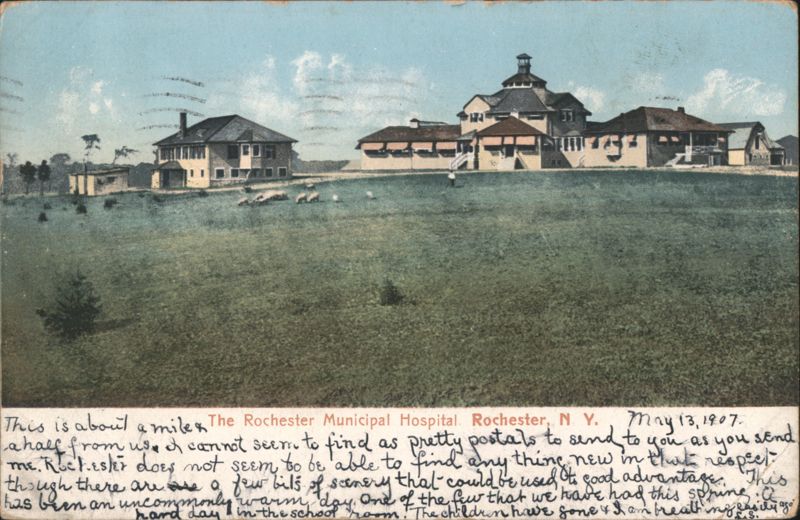 The Rochester Municipal Hospital. Rochester, N Y.
May 13, 1907.
This is about a mile &
a half from us. I cannot seem to find as pretty postals to send to you as you send
me. Rochester does not seem to be able to find any thing new in that respect
though there are a few bits of scenery that could be used to good advantage. This
has been an uncommonly warm day. One of the few that we have had this spring. A
hard day in the school room. The children have gone & I am breathing easily ag'